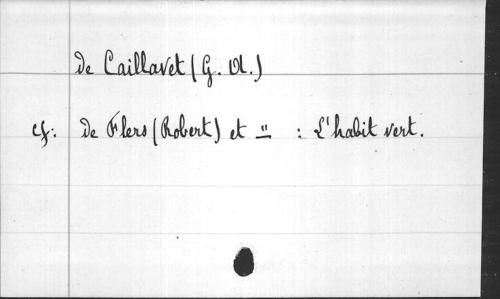 de Caillavet (G. A.)
cf: de Flers (Robert) et " : L'habit vert.